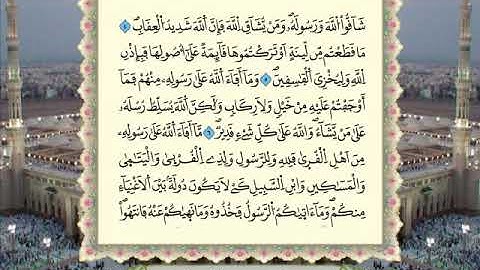 شَاۤقُّوا اللّٰهَ وَرَسُولَهُۚ وَمَنْ يُشَاۤقِّ اللّٰهَ فَاِنَّ اللّٰهَ شَد۪يدُ الْعِقَابِ ٤
مَا قَطَعْتُمْ مِنْ ل۪ينَةٍ اَوْ تَرَكْتُمُوهَا قَاۤئِمَةً عَلٰٓى اُصُولِهَا فَبِاِذْنِ
اللّٰهِ وَلِيُخْزِيَ الْفَاسِق۪ينَ ٥ وَمَٓا اَفَٓاءَ اللّٰهُ عَلٰى رَسُولِه۪ مِنْهُمْ فَمَٓا
اَوْجَفْتُمْ عَلَيْهِ مِنْ خَيْلٍ وَلَا رِكَابٍ وَلٰكِنَّ اللّٰهَ يُسَلِّطُ رُسُلَهُ
عَلٰى مَنْ يَشَٓاءُۜ وَاللّٰهُ عَلٰى كُلِّ شَيْءٍ قَد۪يرٌ ٦ مَٓا اَفَٓاءَ اللّٰهُ عَلٰى رَسُولِه۪
مِنْ اَهْلِ الْقُرٰى فَلِلّٰهِ وَلِلرَّسُولِ وَلِذِي الْقُرْبٰى وَالْيَتَامٰى
وَالْمَسَاك۪ينِ وَابْنِ السَّب۪يلِ كَيْ لَا يَكُونَ دُولَةً بَيْنَ الْاَغْنِيَٓاءِ
مِنْكُمْۜ وَمَٓا اٰتٰيكُمُ الرَّسُولُ فَخُذُوهُ وَمَا نَهٰيكُمْ عَنْهُ فَانْتَهُواۚ